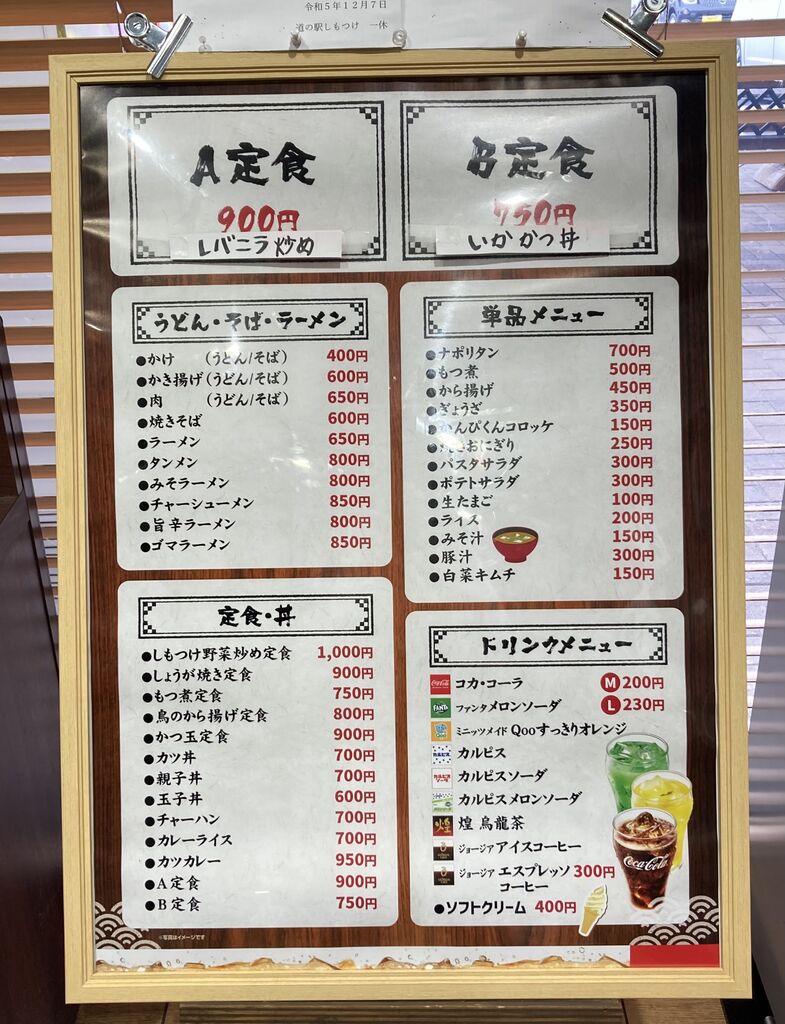 令和5年12月7日
道の駅しもつけ 一休
A定食
900円
レバニラ炒め
B定食
750円
いかかつ丼
うどん・そば・ラーメン
●かけ (うどん/そば) 400円
●かき揚げ(うどん/そば) 600円
●肉 (うどん/そば) 650円
●焼きそば 600円
●ラーメン 650円
●タンメン 800円
●みそラーメン 800円
●チャーシューメン 850円
●旨辛ラーメン 800円
●ゴマラーメン 850円
単品メニュー
●ナポリタン 700円
●もつ煮 500円
●から揚げ 450円
●ぎょうざ 350円
●かんぴくんコロッケ 150円
●焼きおにぎり 250円
●パスタサラダ 300円
●ポテトサラダ 300円
●生たまご 100円
●ライス 200円
●みそ汁 150円
●豚汁 300円
●白菜キムチ 150円
定食・丼
●しもつけ野菜炒め定食 1,000円
●しょうが焼き定食 900円
●もつ煮定食 750円
●鳥のから揚げ定食 800円
●かつ玉定食 900円
●カツ丼 700円
●親子丼 700円
●玉子丼 600円
●チャーハン 700円
●カレーライス 700円
●カツカレー 950円
●A定食 900円
●B定食 750円
※写真はイメージです
ドリンクメニュー
コカ・コーラ M200円
ファンタメロンソーダ L230円
ミニッツメイド Qooすっきりオレンジ
カルピス
カルピスソーダ
カルピスメロンソーダ
煌 烏龍茶
ジョージア アイスコーヒー
ジョージア エスプレッソ 300円
コーヒー
●ソフトクリーム 400円
Coca-Cola